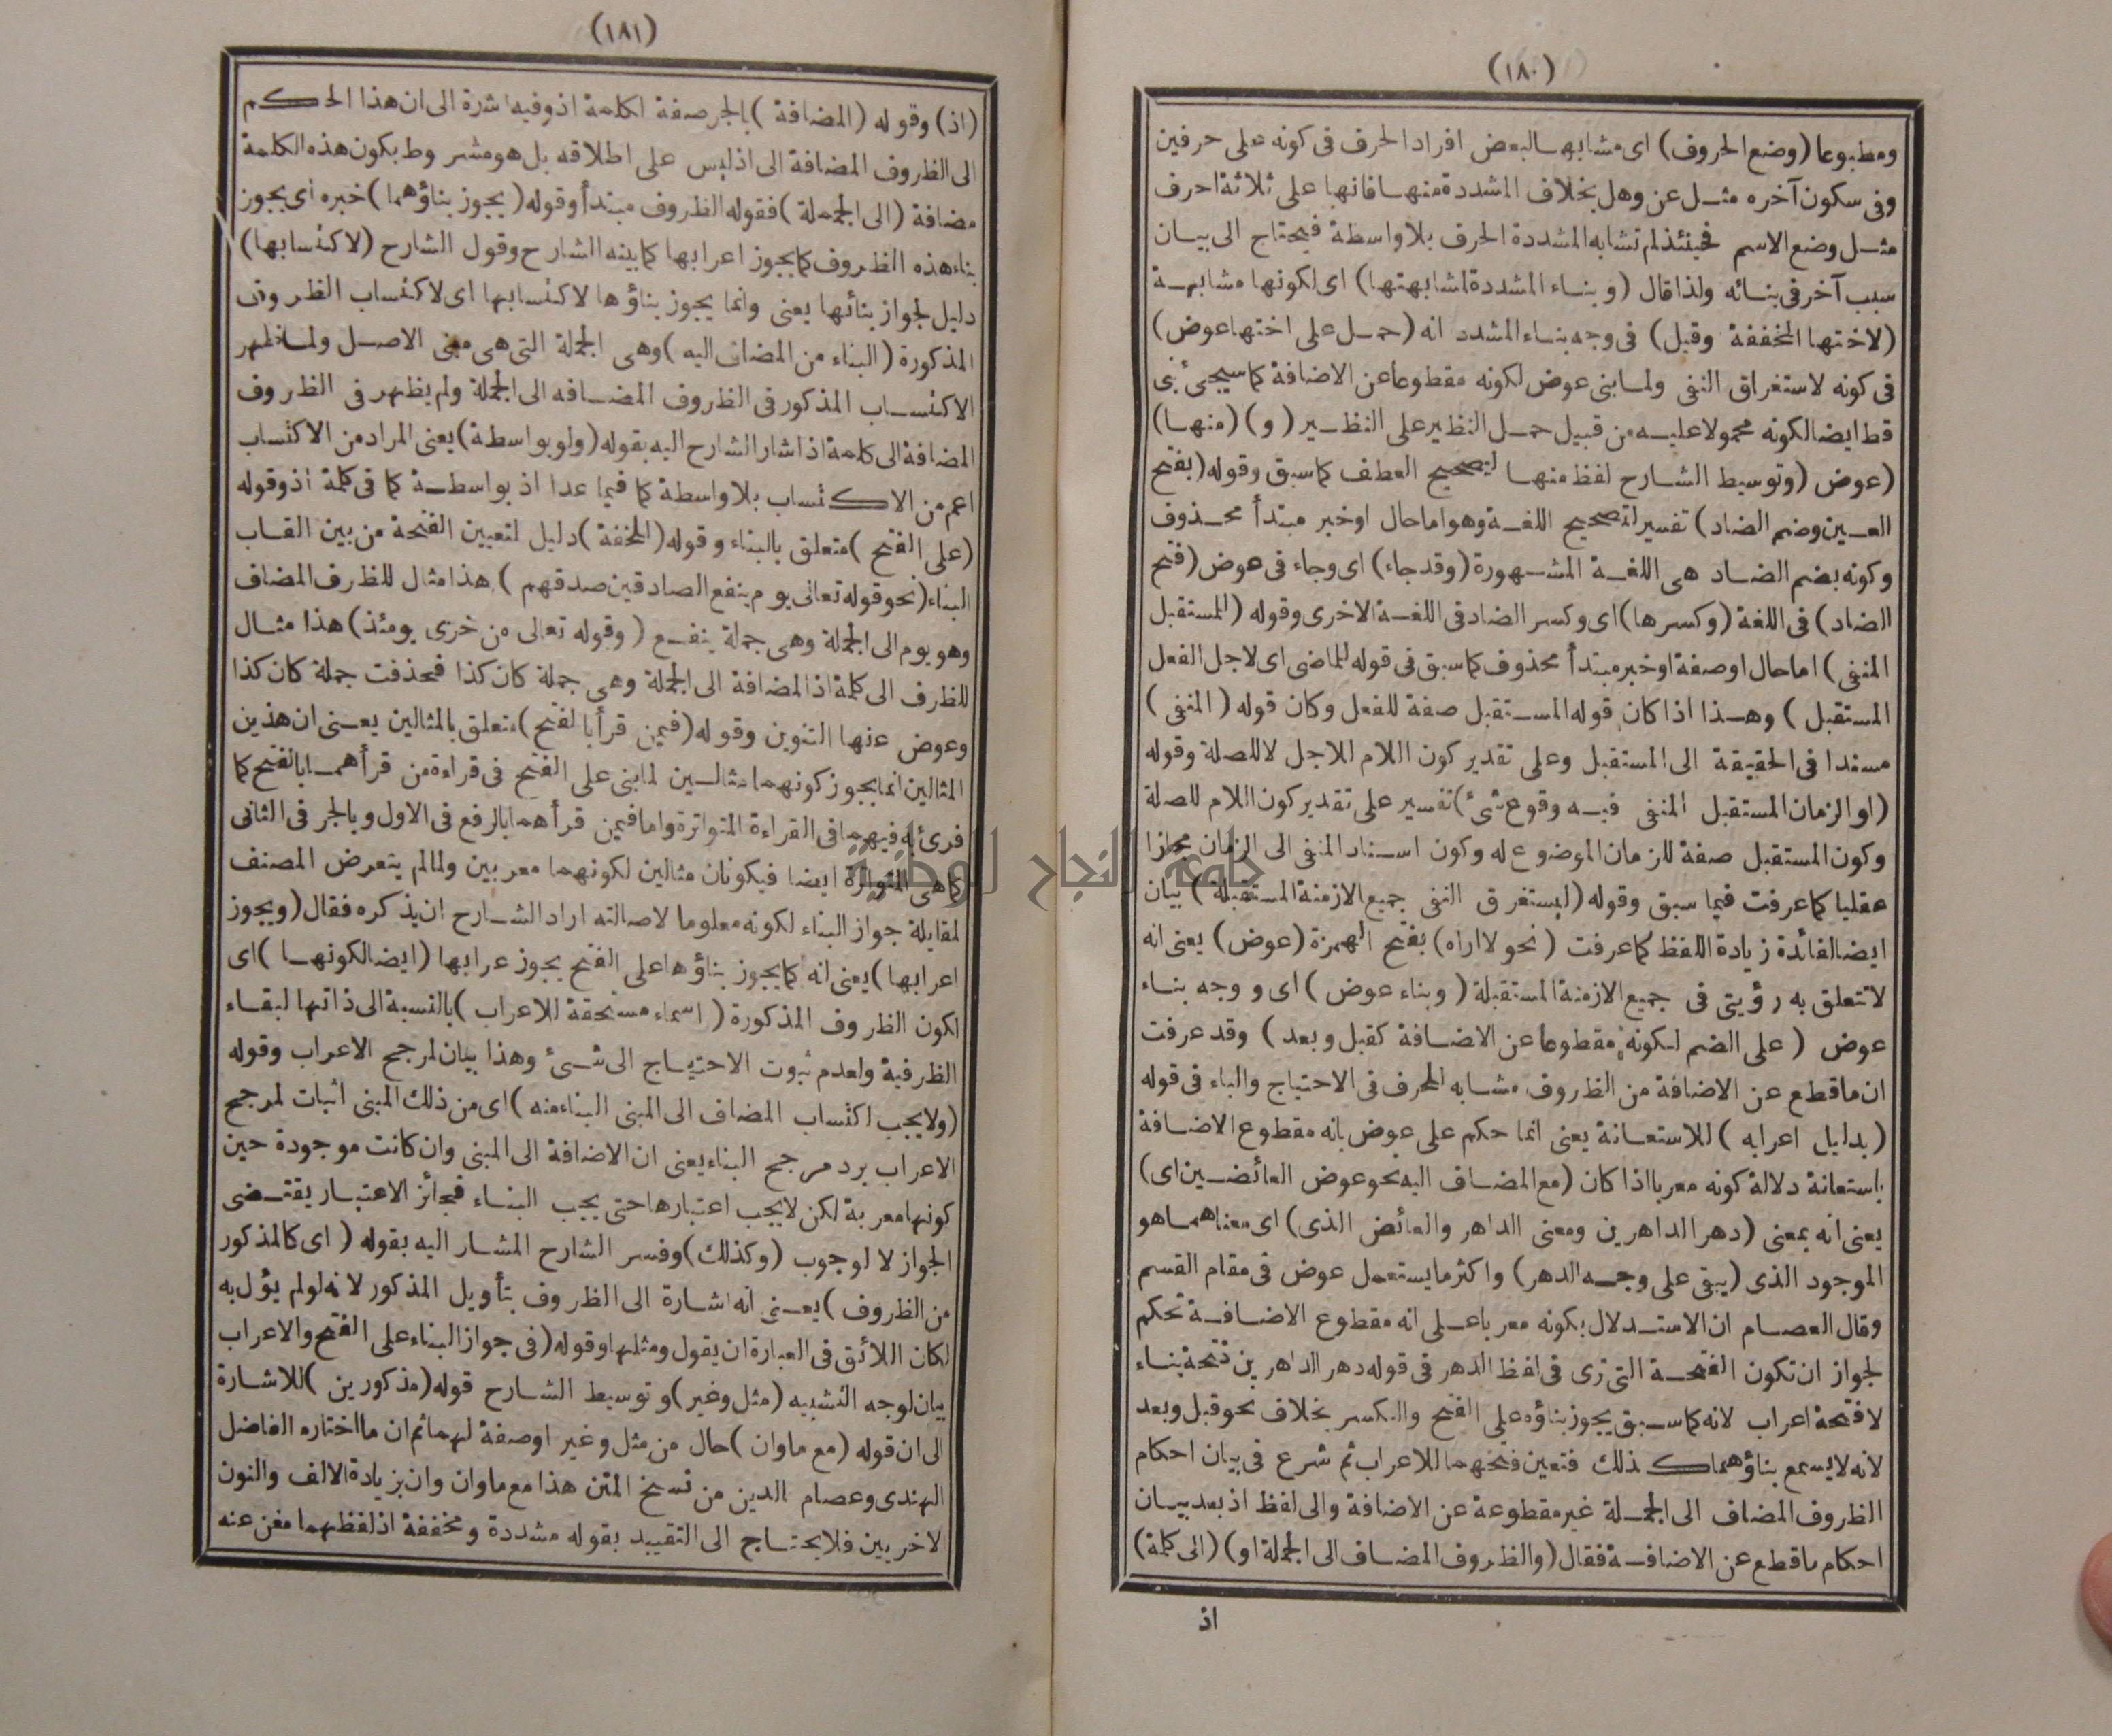 (١٨٠)
ومطبوعا (وضع الحروف) اى مشابها لبعض افراد الحرف فى كونه على حرفين
وفى سكون آخره مثل عن وهل بخلاف المشددة منها فانها على ثلاثة احرف
مثل وضع الاسم فحينئذ لم تشابه المشددة الحرف بلا واسطة فيحتاج الى بيان
سبب آخر فى بنائه ولذا قال (وبناء المشددة لمشابهتها) اى لكونها مشابهة
(لاختها المخففة وقيل) فى وجه بناء المشدد انه (حمل على اختها عوض)
فى كونه لاستغراق النفى ولما بنى عوض لكونه مقطوعا عن الاضافة كما سيجئ بنى
قط ايضا لكونه محمولا عليه من قبيل حمل النظير على النظير (و) (منها)
(عوض (وتوسيط الشارح لفظ منها لتصحيح العطف كما سبق وقوله (بفتح
العين وضم الضاد) تفسير لتصحيح اللغة وهو اما حال او خبر مبتدأ محذوف
وكونه بضم الضاد هى اللغة المشهورة (وقد جاء) اى وجاء فى عوض (فتح
الضاد) فى اللغة (وكسرها) اى وكسر الضاد فى اللغة الاخرى وقوله (للمستقبل
المنفى) اما حال او صفة او خبر مبتدأ محذوف كما سبق فى قوله للماضى اى لاجل الفعل
المستقبل) وهذا اذا كان قوله المستقبل صفة للفعل وكان قوله (المنفى)
مسندا فى الحقيقة الى المستقبل وعلى تقدير كون اللام للاجل لا للصلة وقوله
(او الزمان المستقبل المنفى فيه وقوع شئ) تفسير على تقدير كون اللام للصلة
وكون المستقبل صفة للزمان الموضوع له وكون اسناد المنفى الى الزمان مجازا
عقليا كما عرفت فيما سبق وقوله (ليستغرق النفى جميع الازمنة المستقبلة) بيان
ايضا لفائدة زيادة اللفظ كما عرفت (نحو لا اراه) بفتح الهمزة (عوض) يعنى انه
لا تتعلق به رؤيتى فى جميع الازمنة المستقبلة (وبناء عوض) اى ووجه بناء
عوض (على الضم لكونه مقطوعا عن الاضافة كقبل وبعد) وقد عرفت
ان ما قطع عن الاضافة من الظروف مشابه للحرف فى الاحتياج والباء فى قوله
(بدليل اعرابه) للاستعانة يعنى انما حكم على عوض بانه مقطوع الاضافة
باستعانة دلالة كونه معربا اذا كان (مع المضاف اليه نحو عوض العائضين اى)
يعنى انه بمعنى (دهر الداهرين ومعنى الداهر والعائض الذى) اى معناهما هو
الموجود الذى (يبقى على وجه الدهر) واكثر ما يستعمل عوض فى مقام القسم
وقال العصام ان الاستدلال بكونه معربا على انه مقطوع الاضافة تحكم
لجواز ان تكون الفتحة التى ترى فى لفظ الدهر فى قوله دهر الداهرين فتحة بناء
لا فتحة اعراب لانه كما سبق يجوز بناؤه على الفتح والكسر بخلاف نحو قبل وبعد
لانه لا يسمع بناؤهما كذلك فتعين فتحهما للاعراب ثم شرع فى بيان احكام
الظروف المضاف الى الجملة غير مقطوعة عن الاضافة والى لفظ اذ بعد بيان
احكام ما قطع عن الاضافة فقال (والظروف المضاف الى الجملة او) (الى كلمة)
اذ
(١٨١)
(اذ) وقوله (المضافة) بالجر صفة لكلمة اذ وفيه اشارة الى ان هذا الحكم
الى الظروف المضافة الى اذ ليس على اطلاقه بل هو مشروط بكون هذه الكلمة
مضافة (الى الجملة) فقوله الظروف مبتدأ وقوله (يجوز بناؤهما) خبره اى يجوز
بناء هذه الظروف كما يجوز اعرابها كما بينه الشارح وقول الشارح (لاكتسابها)
دليل لجواز بنائها يعنى وانما يجوز بناؤها لاكتسابها اى لاكتساب الظروف
المذكورة (البناء من المضاف اليه) وهى الجملة التى هى مبنى الاصل ولما ظهر
الاكتساب المذكور فى الظروف المضافه الى الجملة ولم يظهر فى الظروف
المضافة الى كلمة اذ اشار الشارح اليه بقوله (ولو بواسطة) يعنى المراد من الاكتساب
اعم من الاكتساب بلا واسطة كما فيما عدا اذ بواسطة كما فى كلمة اذ وقوله
(على الفتح) متعلق بالبناء وقوله (للخفة) دليل لتعيين الفتحة من بين القاب
البناء (نحو قوله تعالى يوم ينفع الصادقين صدقهم) هذا مثال للظرف المضاف
وهو يوم الى الجملة وهى جملة ينفع (وقوله تعالى من خزى يومئذ) هذا مثال
للظرف الى كلمة اذ المضافة الى الجملة وهى جملة كان كذا فحذفت جملة كان كذا
وعوض عنها التنوين وقوله (فيمن قرأ بالفتح) متعلق بالمثالين يعنى ان هذين
المثالين انما يجوز كونهما مثالين لما بنى على الفتح فى قراءة من قرأهما بالفتح كما
قرئ به فيهما فى القراءة المتواترة واما فيمن قرأهما بالرفع فى الاول وبالجر فى الثانى
كما هى المتواترة ايضا فيكونان مثالين لكونهما معربين ولما لم يتعرض المصنف
لمقابلة جواز البناء لكونه معلوما لاصالته اراد الشارح ان يذكره فقال (ويجوز
اعرابها) يعنى انه كما يجوز بناؤها على الفتح يجوز عرابها (ايضا لكونها) اى
لكون الظروف المذكورة (اسماء مستحقة للاعراب) بالنسبة الى ذاتها لبقاء
الظرفية ولعدم ثبوت الاحتياج الى شئ وهذا بيان لمرجح الاعراب وقوله
(ولا يجب اكتساب المضاف الى المبنى البناء منه) اى من ذلك المبنى اثبات لمرجح
الاعراب برد مرجح البناء يعنى ان الاضافة الى المبنى وان كانت موجودة حين
كونها معربة لكن لا يجب اعتبارها حتى يجب البناء فجائز الاعتبار يقتضى
الجواز لا لوجوب (وكذلك) وفسر الشارح المشار اليه بقوله (اى كالمذكور
من الظروف) يعنى انه اشارة الى الظروف بتأويل المذكور لانه لو لم يؤل به
لكان اللائق فى العبارة ان يقول ومثلها وقوله (فى جواز البناء على الفتح والاعراب
بيان لوجه التشبيه (مثل وغير) وتوسيط الشارح قوله (مذكورين) للاشارة
الى ان قوله (مع ما وان) حال من مثل وغير او صفة لهما ثم ان ما اختاره الفاضل
الهندى وعصام الدين من نسخ المتن هذا مع ما وان وان بزيادة الالف والنون
لاخريين فلا يحتاج الى التقييد بقوله مشددة ومخففة اذ لفظهما مغن عنه
جامعة النجاح الوطنية